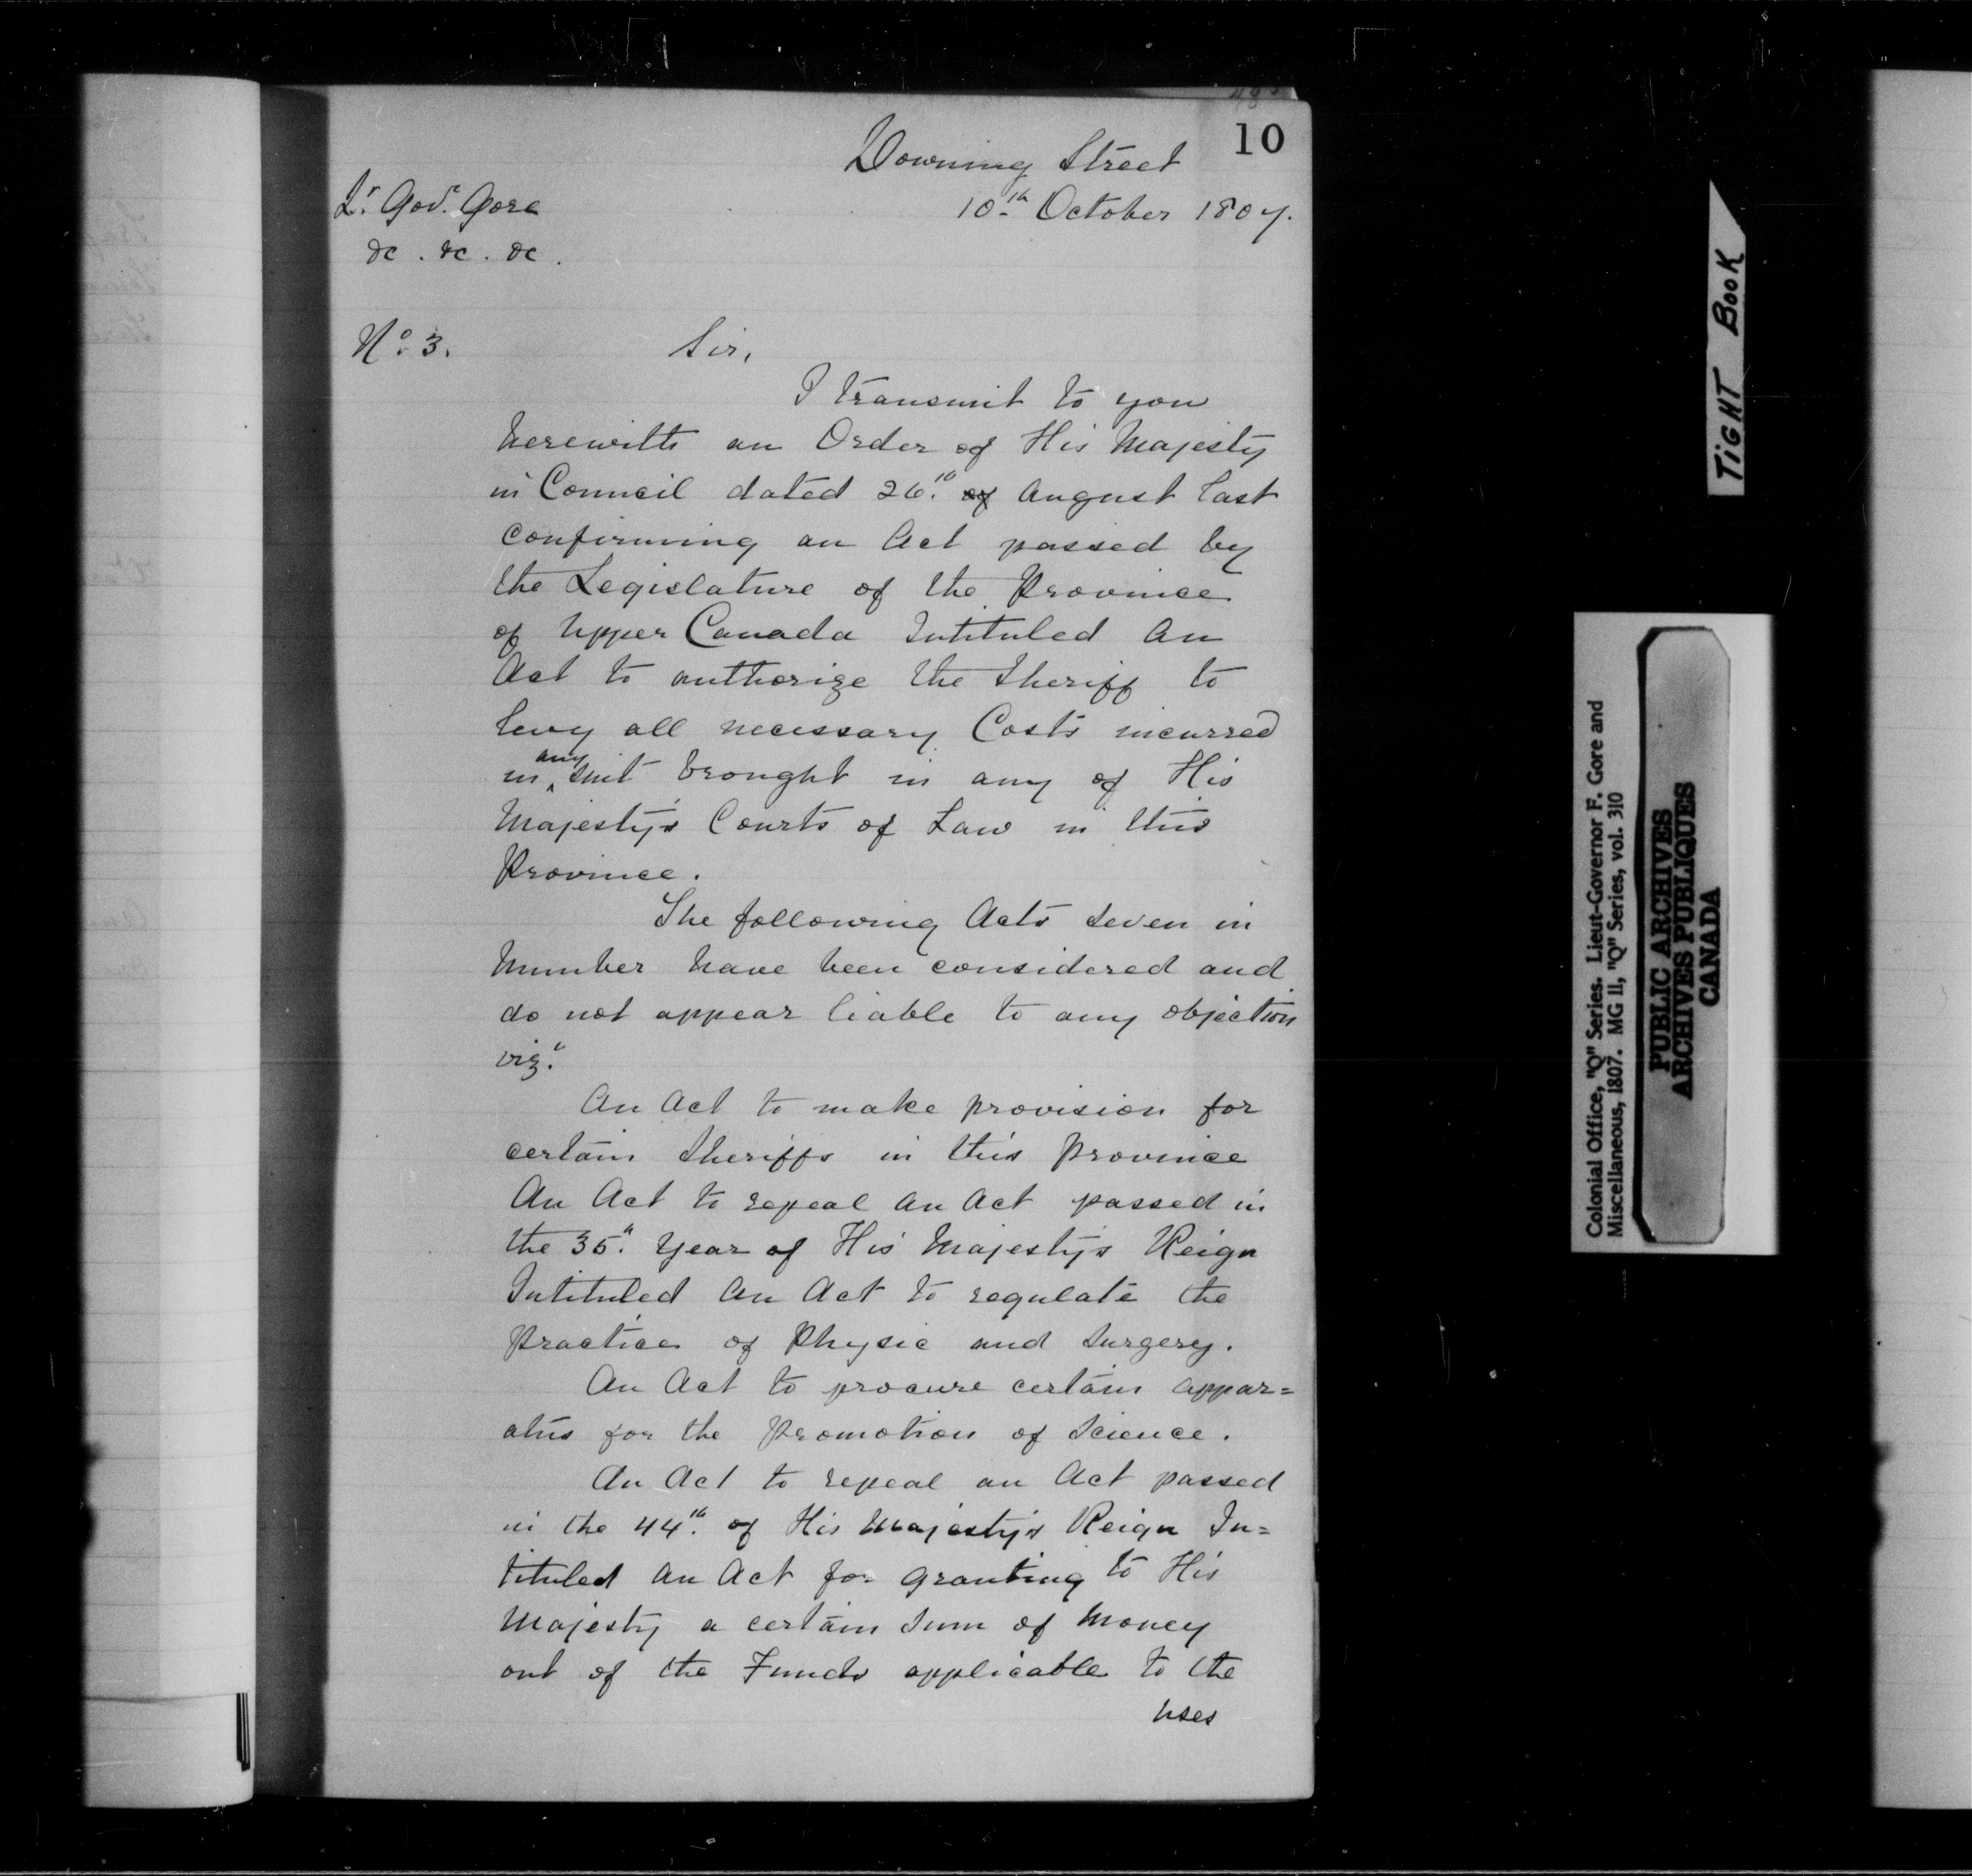 10
Downing Street
Lt. Govr. Gore
10th October 1807.
&c. &c. &c.
No. 3.
Sir,
I transmit to you
herewith an Order of His Majesty
in Council dated 26th of August last
confirming an Act passed by
the Legislature of the Province
of Upper Canada Intituled An
Act to authorize the Sheriff to
levy all necessary Costs incurred
in any Suit brought in any of His
Majesty's Courts of Law in this
Province.
The following Acts seven in
Number have been considered and
do not appear liable to any objection
vizt.
An Act to make provision for
certain Sheriffs in this Province
An Act to repeal an Act passed in
the 35th Year of His Majesty's Reign
Intituled An Act to regulate the
Practice of Physic and Surgery.
An Act to procure certain Appar=
atus for the Promotion of Science.
An Act to repeal an Act passed
in the 44th of His Majesty's Reign In=
tituled An Act for granting to His
Majesty a certain Sum of Money
out of the Funds applicable to the
uses
TIGHT BOOK
Colonial Office, "Q" Series. Lieut-Governor F. Gore and
Miscellaneous, 1807. MG 11, "Q" Series, vol. 310
PUBLIC ARCHIVES
ARCHIVES PUBLIQUES
CANADA